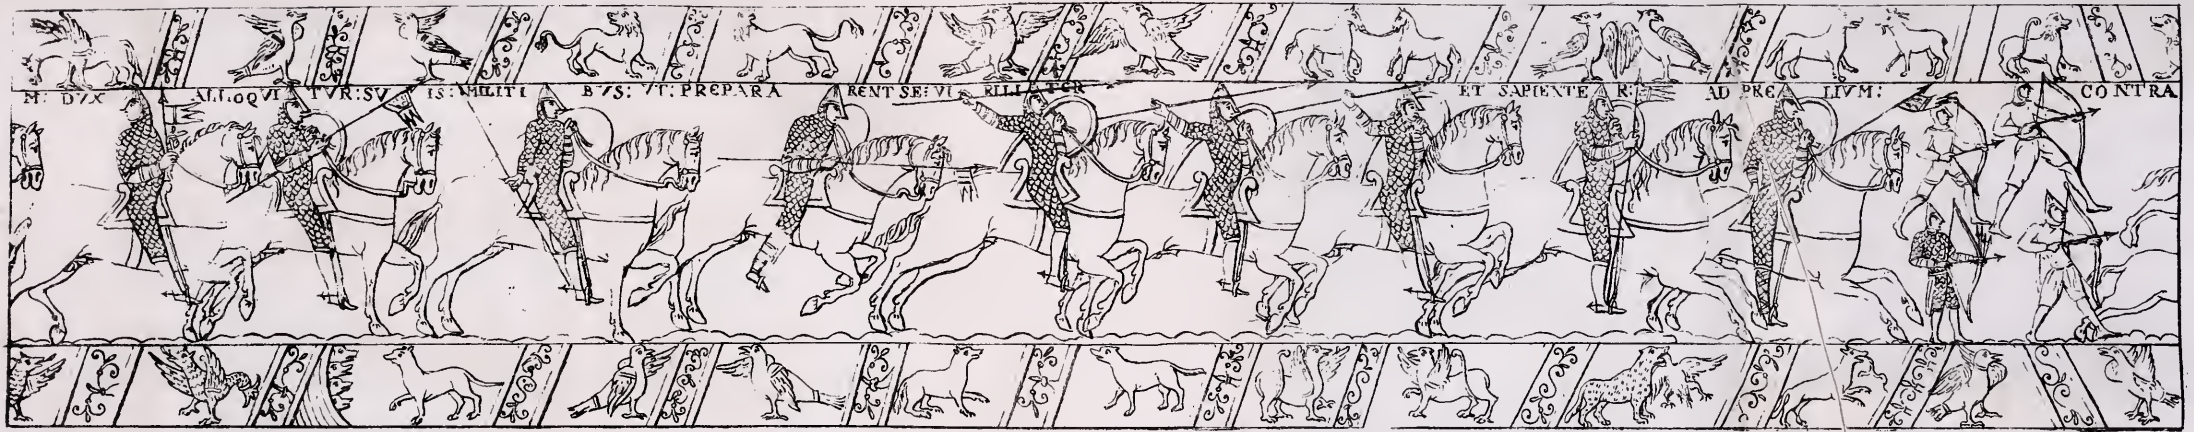 M: DVX A ALLOQVI TVR: SV IS: MILITI BVS: VT: PREPARA RENT SE: VI RILI TER ET SAPIENTE R: AD PRE LIVM: CONTRA